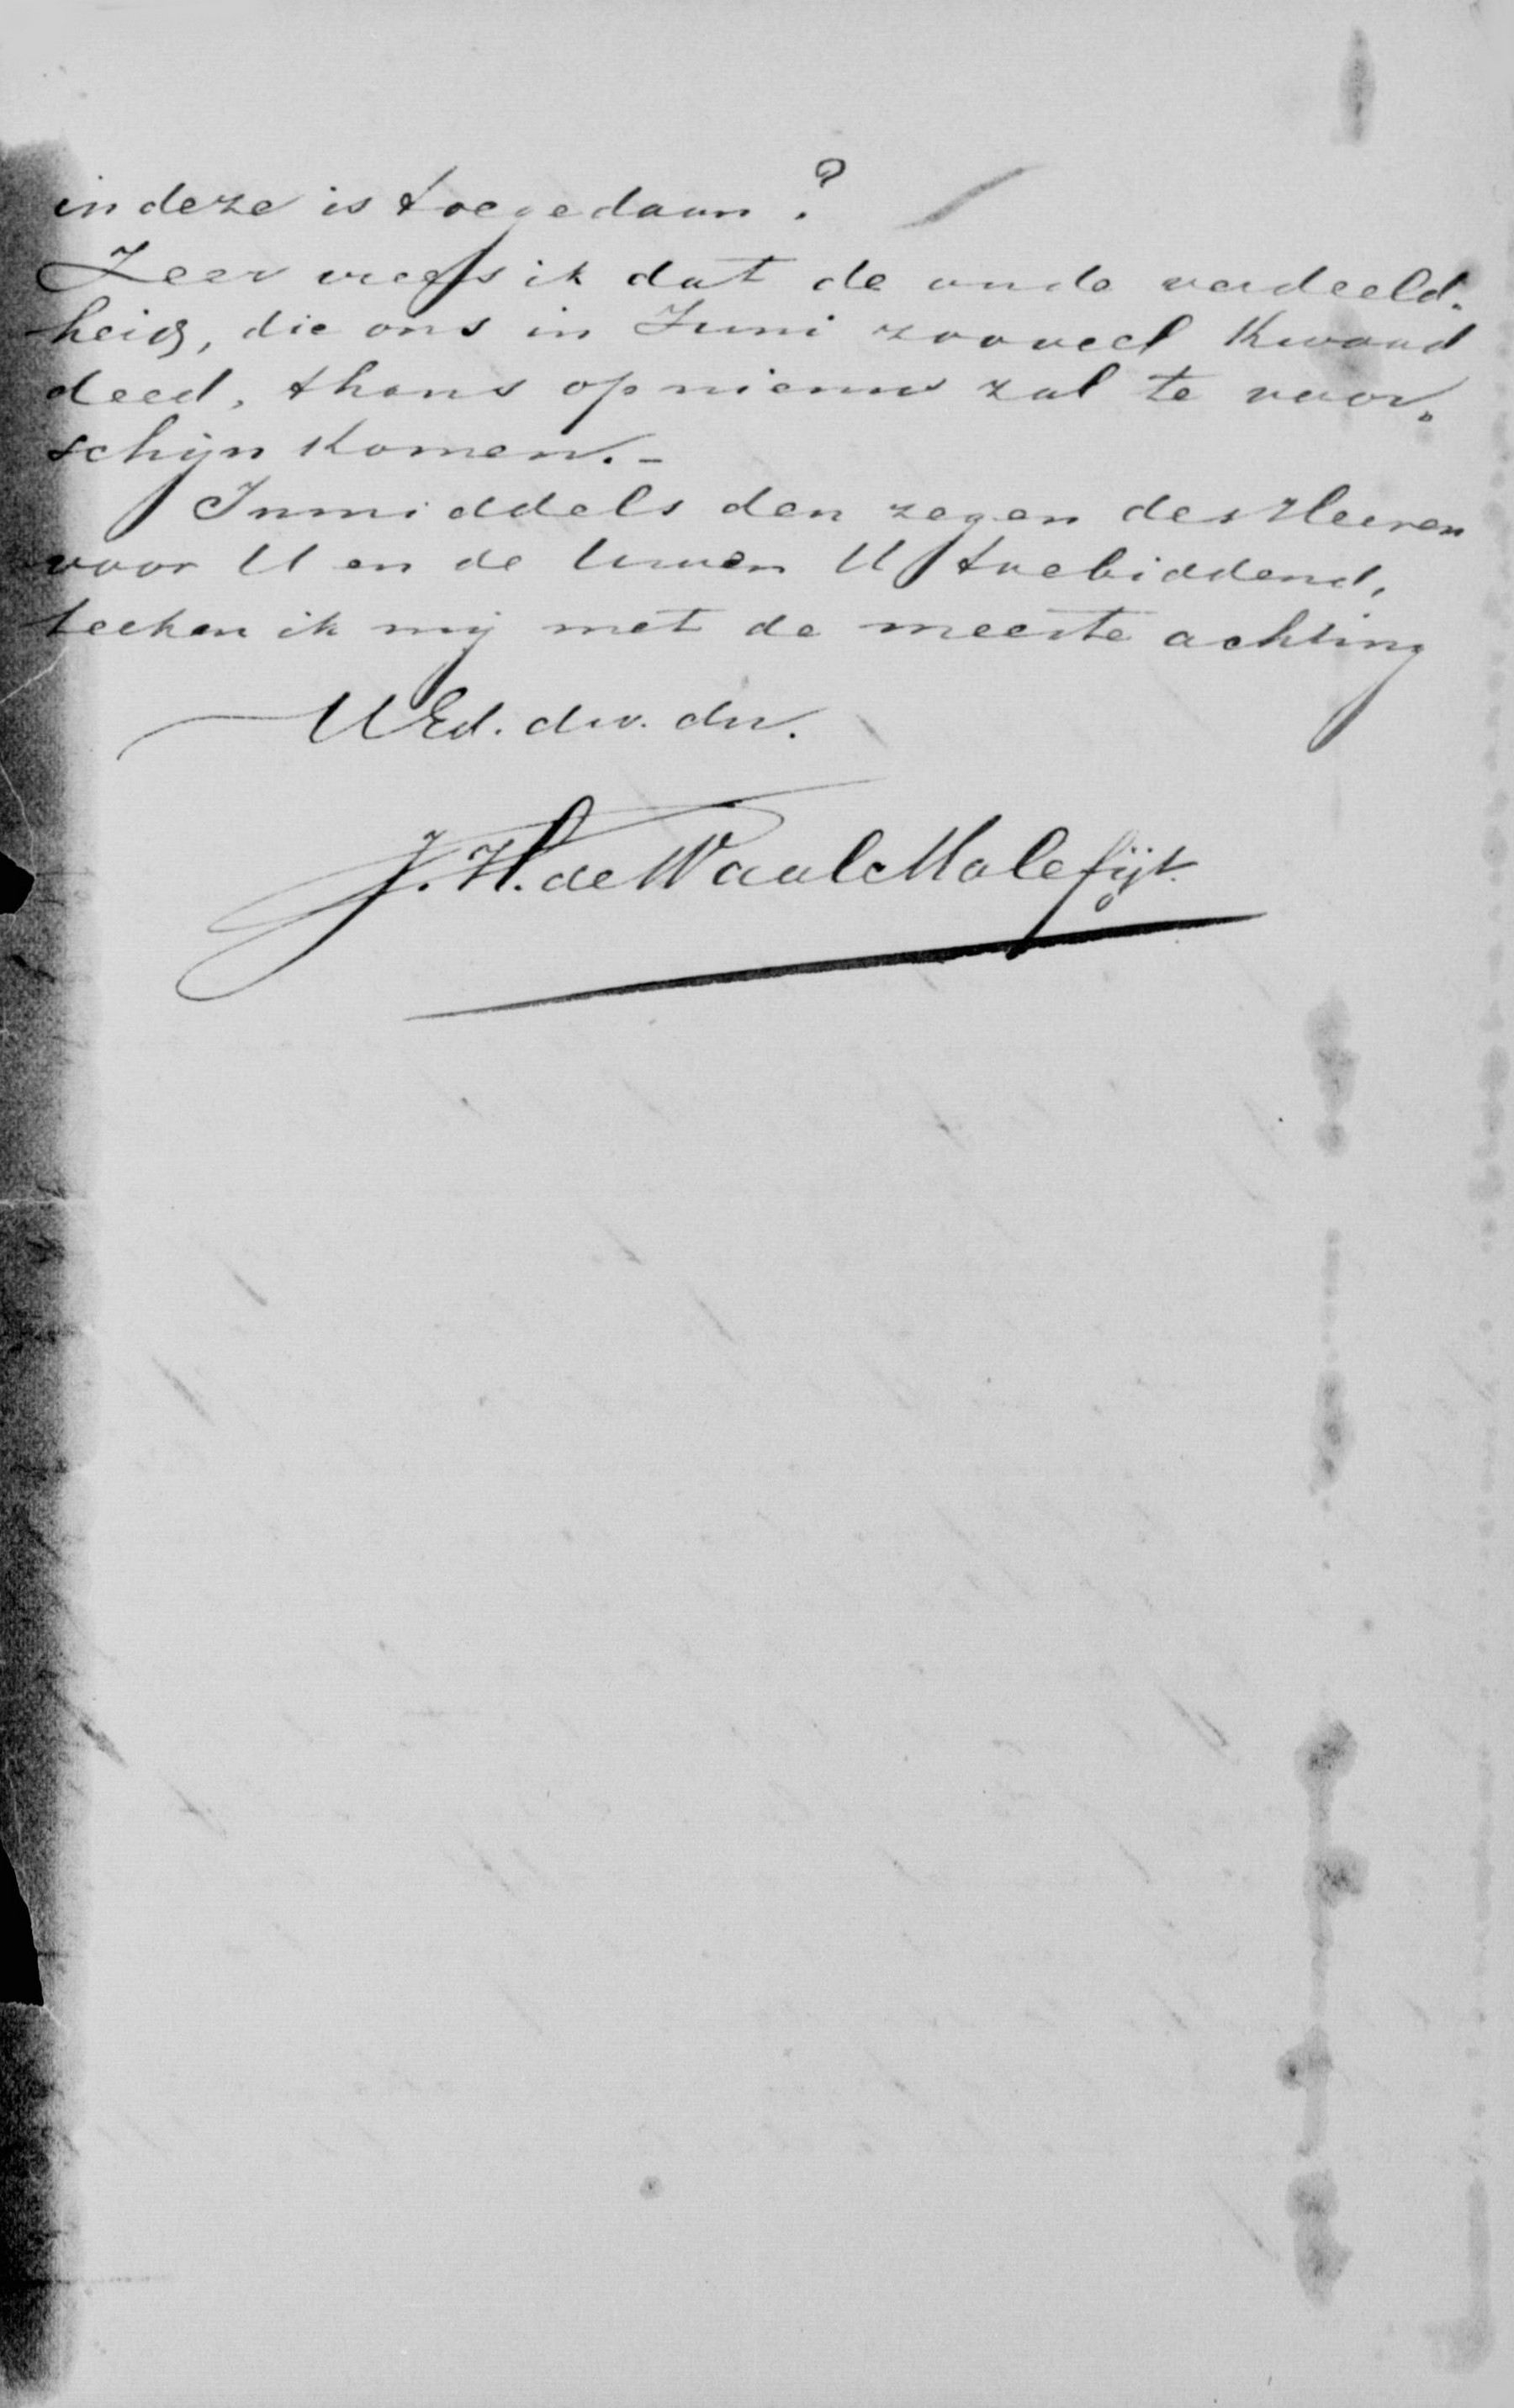 in deze is toegedaan?
Zeer vrees ik dat de oude verdeeld-
heid, die ons in Juni zooveel kwaad
deed, thans opnieuw zal te voor-
schijn komen. -
Inmiddels den zegen des Heeren
voor U en de Uwen U toebiddend,
teeken ik mij met de meeste achting
UEd. dw. dn.
J. H. de Waal Malefijt.